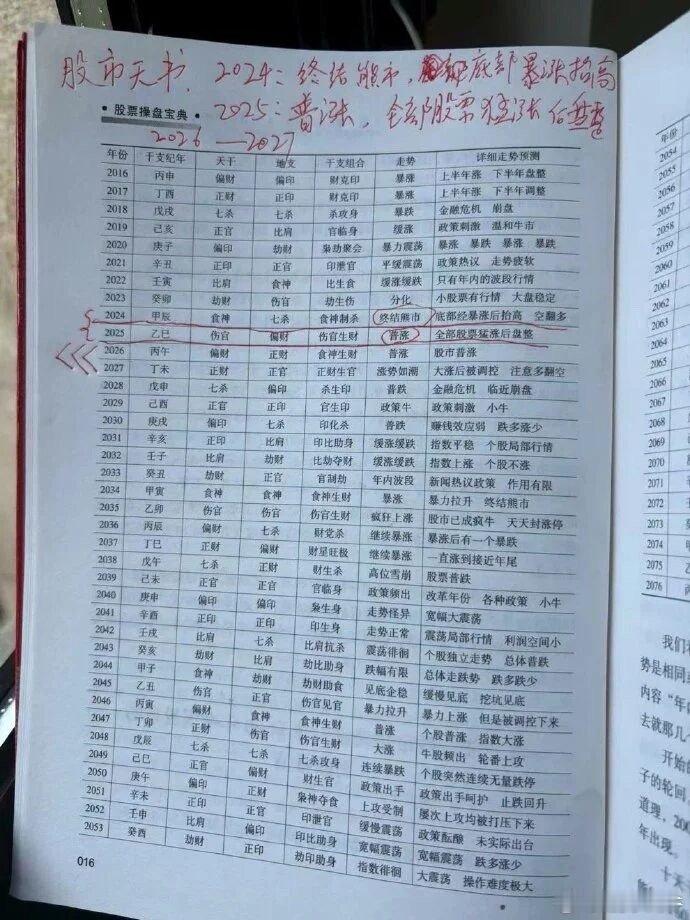 股市天书. 2024: 终结熊市, 底部暴涨抬高
• 股票操盘宝典 • 2025: 普涨, 全部股票猛涨后盘整
2026—2027
年份 干支纪年 天干 地支 干支组合 走势 详细走势预测
2016 丙申 偏财 偏印 财克印 暴涨 上半年涨 下半年盘整
2017 丁酉 正财 正印 财克印 暴涨 上半年涨 下半年调整
2018 戊戌 七杀 七杀 杀攻身 暴跌 金融危机 崩盘
2019 己亥 正官 比肩 官临身 缓涨 政策刺激 温和牛市
2020 庚子 偏印 劫财 枭劫聚会 暴力震荡 暴涨 暴跌 暴涨 暴跌
2021 辛丑 正印 正官 印泄官 平缓震荡 政策热议 走势疲软
2022 壬寅 比肩 食神 比生食 缓涨缓跌 只有年内的波段行情
2023 癸卯 劫财 伤官 劫生伤 分化 小股票有行情 大盘稳定
2024 甲辰 食神 七杀 食神制杀 终结熊市 底部经暴涨后抬高 空翻多
2025 乙巳 伤官 偏财 伤官生财 普涨 全部股票猛涨后盘整
2026 丙午 偏财 正财 食神生财 普涨 股市普涨
2027 丁未 正财 正官 正财生官 涨势如潮 大涨后被调控 注意多翻空
2028 戊申 七杀 偏印 杀生印 普跌 金融危机 临近崩盘
2029 己酉 正官 正印 官生印 政策牛 政策刺激 小牛
2030 庚戌 偏印 七杀 印化杀 普跌 赚钱效应弱 跌多涨少
2031 辛亥 正印 比肩 印比助身 缓涨缓跌 指数平稳 个股局部行情
2032 壬子 比肩 劫财 比劫夺财 缓涨缓跌 指数上涨 个股不涨
2033 癸丑 劫财 正官 官制劫 年内波段 新闻热议政策 作用有限
2034 甲寅 食神 食神 食神生财 暴涨 暴力拉升 终结熊市
2035 乙卯 伤官 伤官 伤官生财 疯狂上涨 股市已成疯牛 天天封涨停
2036 丙辰 偏财 七杀 财党杀 继续暴涨 暴涨后有一个暴跌
2037 丁巳 正财 偏财 财星旺极 继续暴涨 一直涨到接近年尾
2038 戊午 七杀 正财 财生杀 高位雪崩 股票普跌
2039 己未 正官 正官 官临身 政策频出 改革年份 各种政策 小牛
2040 庚申 偏印 偏印 枭生身 走势怪异 宽幅大震荡
2041 辛酉 正印 正印 印生身 走势正常 震荡局部行情 利润空间小
2042 壬戌 比肩 七杀 比肩抗杀 震荡徘徊 个股独立走势 总体普跌
2043 癸亥 劫财 比肩 劫比助身 跌幅有限 总体走跌势 跌多跌少
2044 甲子 食神 劫财 劫财助食 见底企稳 缓慢见底 挖坑见底
2045 乙丑 伤官 正官 伤官见官 暴力拉升 暴力上涨 但是被调控下来
2046 丙寅 偏财 食神 食神生财 普涨 个股普涨 指数大涨
2047 丁卯 正财 伤官 伤官生财 大涨 牛股频出 轮番上攻
2048 戊辰 七杀 七杀 七杀攻身 连续暴跌 个股突然连续无量跌停
2049 己巳 正官 偏财 财生官 政策出手 政策出手呵护 止跌回升
2050 庚午 偏印 正财 枭神夺食 上攻受制 屡次上攻均被打压下来
2051 辛未 正印 正官 印泄官 缓慢震荡 政策酝酿 未实际出台
2052 壬申 比肩 偏印 印比助身 宽幅震荡 宽幅震荡 跌多涨少
2053 癸酉 劫财 正印 劫印助身 指数徘徊 大震荡 操作难度极大
016
年份
2054
2060
2061
2062
2063
2064
2065
2066
2067
2068
2069
2070
2071
2072
2073
2074
2075
2076
我们
势是相同
内容“年
去就那几
开始的
子的轮回
道理，200
年出现。
十天